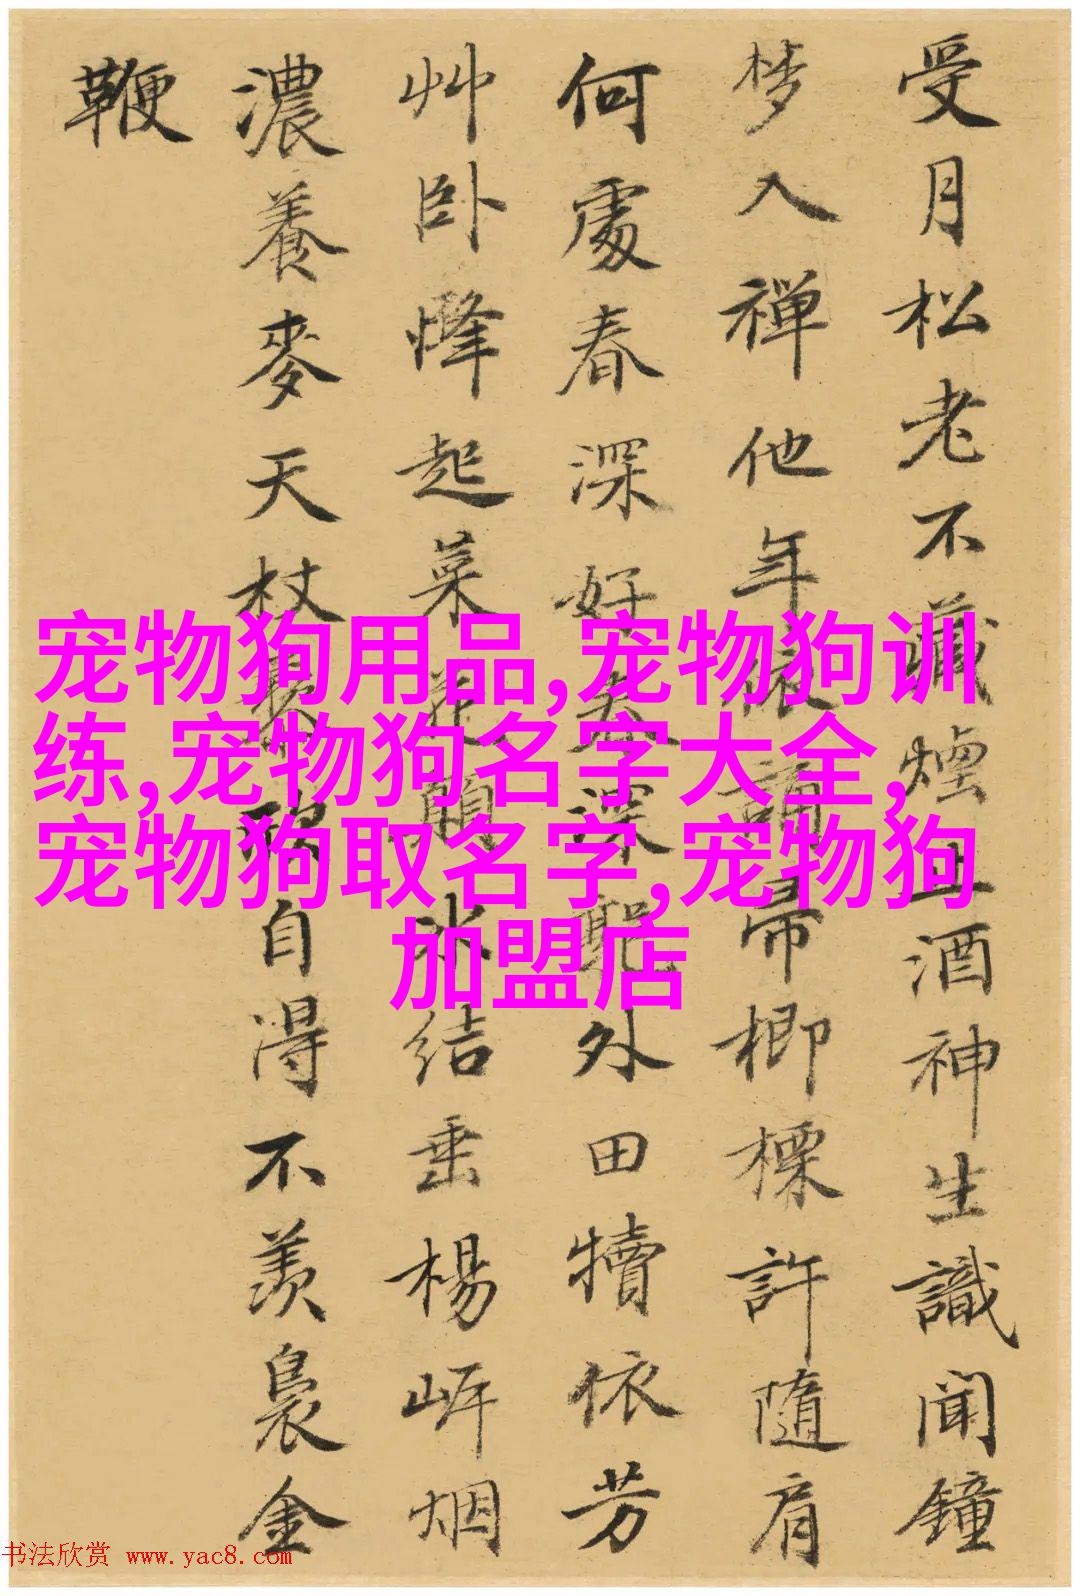 受月松老不藏煙且酒神生識聞鐘
梦入禅他年誦帚楖標許隨肩
何處春深好春深野外田犢依芳
艸卧烽起菜花顛冰结垂楊岍烟
濃養麥天杖自淂不羨裊金
鞭
宠物狗用品,宠物狗训
练,宠物狗名字大全,
宠物狗取名字,宠物狗
加盟店
书法欣赏 www.yac8.com